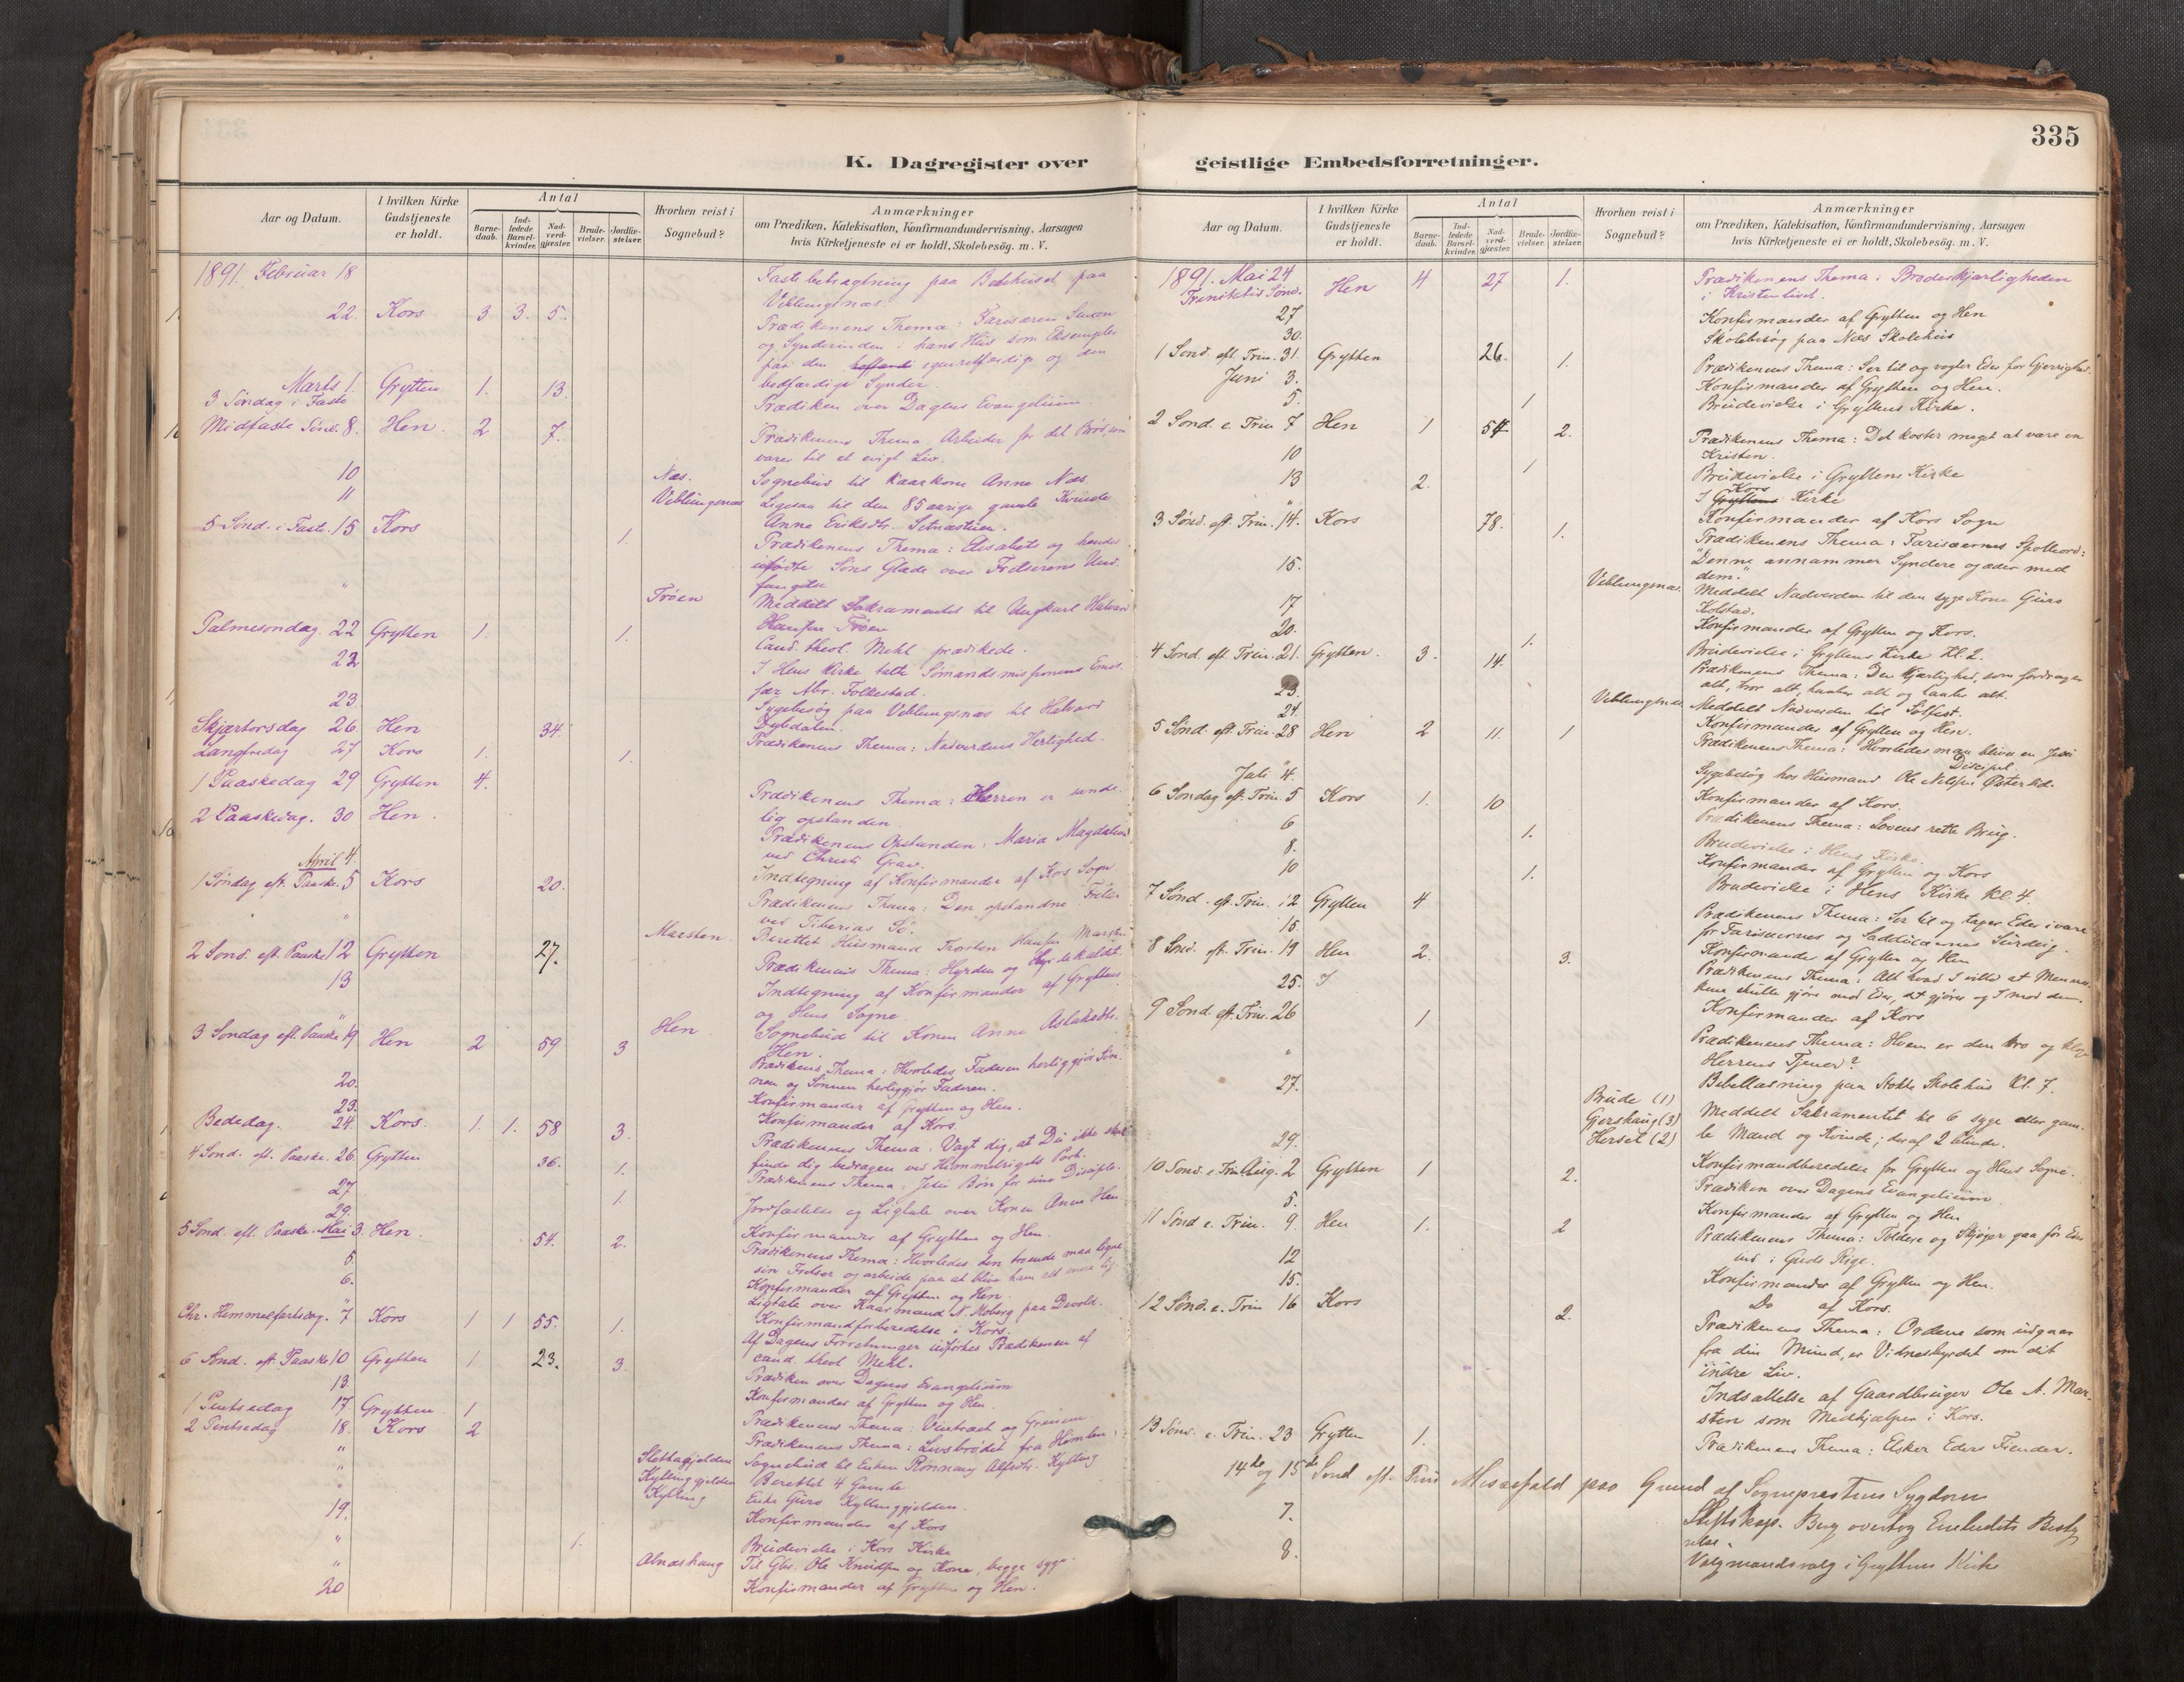 335
K. Dagregister over geistlige Embedsforretninger.
Aar og Datum.
I hvilken Kirke Gudstjeneste er holdt.
Antal
Barnedaab.
Indledede Barselkvinder.
Nadverdgjester.
Brudevielser.
Jordfæstelser.
Hvorhen reist i Sognebud?
Anmærkninger
om Prædiken, Katekisation, Konfirmandundervisning, Aarsagen
hvis Kirketjeneste ei er holdt, Skolebesög. m. V.
1891. Februar 18 Fastebetragtning paa Bedehuset paa
Veblungsnæs.
22. Kors 3 3. 5. Prædikenens Thema: Farisæeren Simon
og Synderinden i hans Hus som Eksempler
paa den egenretfærdige og den
bodfærdige Synder.
Marts 1. Grytten 1. 13.
3 Søndag i Faste Prædiken over Dagens Evangelium.
Midfaste Sönd. 8. Hen 2 7. Prædikenens Thema: Arbeider for det Bröd, som
varer til et evigt Liv.
10 Næs. Sognebud til Kaarkone Anne Næs.
11 Veblungsnæs Ligesaa til den 85 aarige gamle Kvinde
Anne Eriksdtr. Setnæstuen.
5 Sönd. i Faste. 15 Kors 1. Prædikenens Thema: Elisabets og hendes
ufødte Søns Glæde over Frelserens Und-
fangelse
" Tröen Meddelt Sakramentet til Ungkarl Halvard
Hansen Tröen
Palmesøndag. 22 Grytten 1. 1. Cand. theol. Mehl prædikede.
22 I Hens Kirke talte Sömandsmissionens Emis-
sær Abr. Folkestad.
23. Sygebesög paa Veblungsnæs til Halvard
Dybdalen.
Skjærtorsdag 26. Hen 34. Prædikenens Thema: Nadverdens Herlighed.
Langfredag 27 Kors 1. 1.
1 Paaskedag 29 Grytten 4. Prædikenens Thema: Herren er sande-
lig opstanden
2 Paaskedag. 30 Hen. Prædikenens Opstanden: Maria Magdalena
ved Christi Grav.
April 4. Indtegning af Konfirmander af Kors Sogn
1 Søndag eft. Paaske. 5 Kors 20. Prædikenens Thema: Den opstandne Frelser
ved Tiberias Sö.
" Marsten. Berettet Husmand Thorsten Hansen Marsten
2 Sönd. eft. Paaske 12 Grytten 27. Prædikenens Thema: Hyrden og Hyrdekaldet.
13 Indtegning af Konfirmander af Gryttens
og Hens Sogne.
" Hen Sognebud til Konen Anne Aslaksdtr.
Hen.
3 Søndag eft. Paaske 19 Hen 2 59 3 Prædikenens Thema: Hvorledes Faderen herliggjör Søn-
nen og Sønnen herliggjör Faderen.
20. Konfirmander af Grytten og Hen.
23. Konfirmander af Kors.
Bededag. 24. Kors. 1. 1. 58 3. Prædikenens Thema: Vogt dig, at Du ikke skal
finde dig bedragen ved Himmelrigets Port.
4 Sönd. eft. Paaske. 26. Grytten 36. 1. Prædikenens Thema: Jesu Bön for sine Disciple.
27 1. Jordfæstelse og Ligtale over Konen Anne Hen.
29. Konfirmander af Grytten og Hen.
5 Sönd. eft. Paaske. Mai 3. Hen. 54. 2. Prædikenens Thema: Hvorledes den troende maa ligne
sin Frelser og arbeide paa at blive ham alt mere lig.
5. Konfirmander af Grytten og Hen.
6. Ligtale over Kaarmand N. Moberg paa Devold.
" Konfirmandforberedelse i Kors.
Chr. Himmelfartsdag. 7 Kors 1 1 55. 1. Af Dagens Forretninger udførtes Prædikenen af
cand. theol. Mehl.
6 Sönd. eft. Paaske 10 Grytten 1 23. 3. Prædiken over Dagens Evangelium
13. Konfirmander af Grytten og Hen.
1 Pintsedag 17. Grytten. 1 Prædikenens Thema: Vintræet og Grenene.
2 Pintsedag 18. Kors 2 Prædikenens Thema: Livsbrödet fra Himlen.
" Slettagjelden Sognebud til Enken Rönnaug Alfsdtr. Kylling
" Kyllinggjelden Berettet 4 Gamle
" Kylling Enke Guro Kyllinggjelden.
19. Konfirmander af Kors
" 1. Brudevielse i Kors Kirke
" Alnæshaug Til Gbr. Ole Knudsen og Kone, begge syge
20 Konfirmander af Grytten og Hen.
Aar og Datum.
I hvilken Kirke Gudstjeneste er holdt.
Antal
Barnedaab.
Indledede Barselkvinder.
Nadverdgjester.
Brudevielser.
Jordfæstelser.
Hvorhen reist i Sognebud?
Anmærkninger
om Prædiken, Katekisation, Konfirmandundervisning, Aarsagen
hvis Kirketjeneste ei er holdt, Skolebesög. m. V.
1891. Mai 24 Hen 4 27 1. Prædikenens Thema: Broderkjærligheden
Trinitatis Sønd. i Kristenlivet.
27 Konfirmander af Grytten og Hen
30. Skolebesög paa Næs Skolehus
1 Sönd. eft. Trin. 31. Grytten 26. 1. Prædikenens Thema: Ser til og vogter Eder for Gjerrighed.
Juni 3. Konfirmander af Grytten og Hen.
5. 1 Brudevielse i Gryttens Kirke.
2 Sönd. e. Trin 7 Hen 1 54 2. Prædikenens Thema: Det koster meget at være en
Kristen.
10 1 Brudevielse i Gryttens Kirke
13 2. I Gryttens Kors Kirke
" Konfirmander af Kors Sogn
3 Sönd. eft. Trin. 14. Kors 78. 1. Prædikenens Thema: Farisæernes Spotteord:
"Denne annammer Syndere og æder med
dem."
15. Veblungsnæs. Meddelt Nadverden til den syge Kone Guro
Kolstad.
17 Konfirmander af Grytten og Kors.
20. 1. Brudevielse i Gryttens Kirke Kl. 2.
4 Sönd. eft. Trin. 21. Grytten. 3. 14. Prædikenens Thema: Den Kjærlighed, som fordrager
alt, tror alt, haaber alt og taaler alt.
23. Veblungsnæs Meddelt Nadverden til
24. Konfirmander af Grytten og Hen.
5 Sönd. eft. Trin. 28 Hen 2 11. 1 Prædikenens Thema: Hvorledes man bliver en Jesu
Discipel.
" Sygebesög hos Husmand Ole Nilsen Østerlid.
Juli 4. Konfirmander af Kors.
6 Søndag eft. Trin. 5 Kors 1. 10 Prædikenens Thema: Lovens rette Brug.
6 1. Brudevielse i Hens Kirke.
8. Konfirmander af Grytten og Kors
10 1. Brudevielse i Hens Kirke Kl. 4.
7 Sönd. eft. Trin. 12 Grytten 4 Prædikenens Thema: Ser til og tager Eder i vare
for Farisæernes og Sadducæernes Surdeig.
15. Konfirmander af Grytten og Hen
8 Sönd. eft. Trin. 19 Hen 2. 3. Prædikenens Thema: Alt hvad I ville at Menne-
skene skulle gjöre mod Eder, det gjörer og I mod dem.
25. Konfirmander af Kors
9 Sönd. eft. Trin. 26 1 Prædikenens Thema: Hvem er den tro og kloge
Herrens Tjener?
" Bibellæsning paa Stokke Skolehus Kl. 7.
27. Brude (1)
Gjershaug (3) Meddelt Sakramentet til 6 syge eller gam-
Herset (2) le Mænd og Kvinder; deraf 2 blinde.
29. Konfirmandberedelse for Grytten og Hens Sogne.
10 Sönd. e. Trin. Aug. 2 Grytten 1 2. Prædiken over Dagens Evangelium
5. Konfirmander af Grytten og Hen
11 Sönd e. Trin. 9. Hen 1. 2 Prædikenens Thema: Toldere og Skjøger gaa för Eder
ind i Guds Rige.
12 Konfirmander af Grytten og Hen.
15. Do af Kors.
12 Sönd. e. Trin 16 Kors 2. Prædikenens Thema: Ordene som udgaar
fra din Mund, er Vidnesbyrdet om dit
indre Liv.
Indsættelse af Gaardbruger Ole A. Mar-
sten som Medhjælper i Kors.
13 Sönd. e. Trin. 23 Grytten 1. Prædikenens Thema: Elsker Eders Fiender.
14de og 15de Sönd eft. Trin Messefald paa Grund af Sognepræstens Sygdom
7. Stiftskap. Berg overtog Embedets Besty-
relse.
8. Valgmandsvalg i Gryttens Kirke